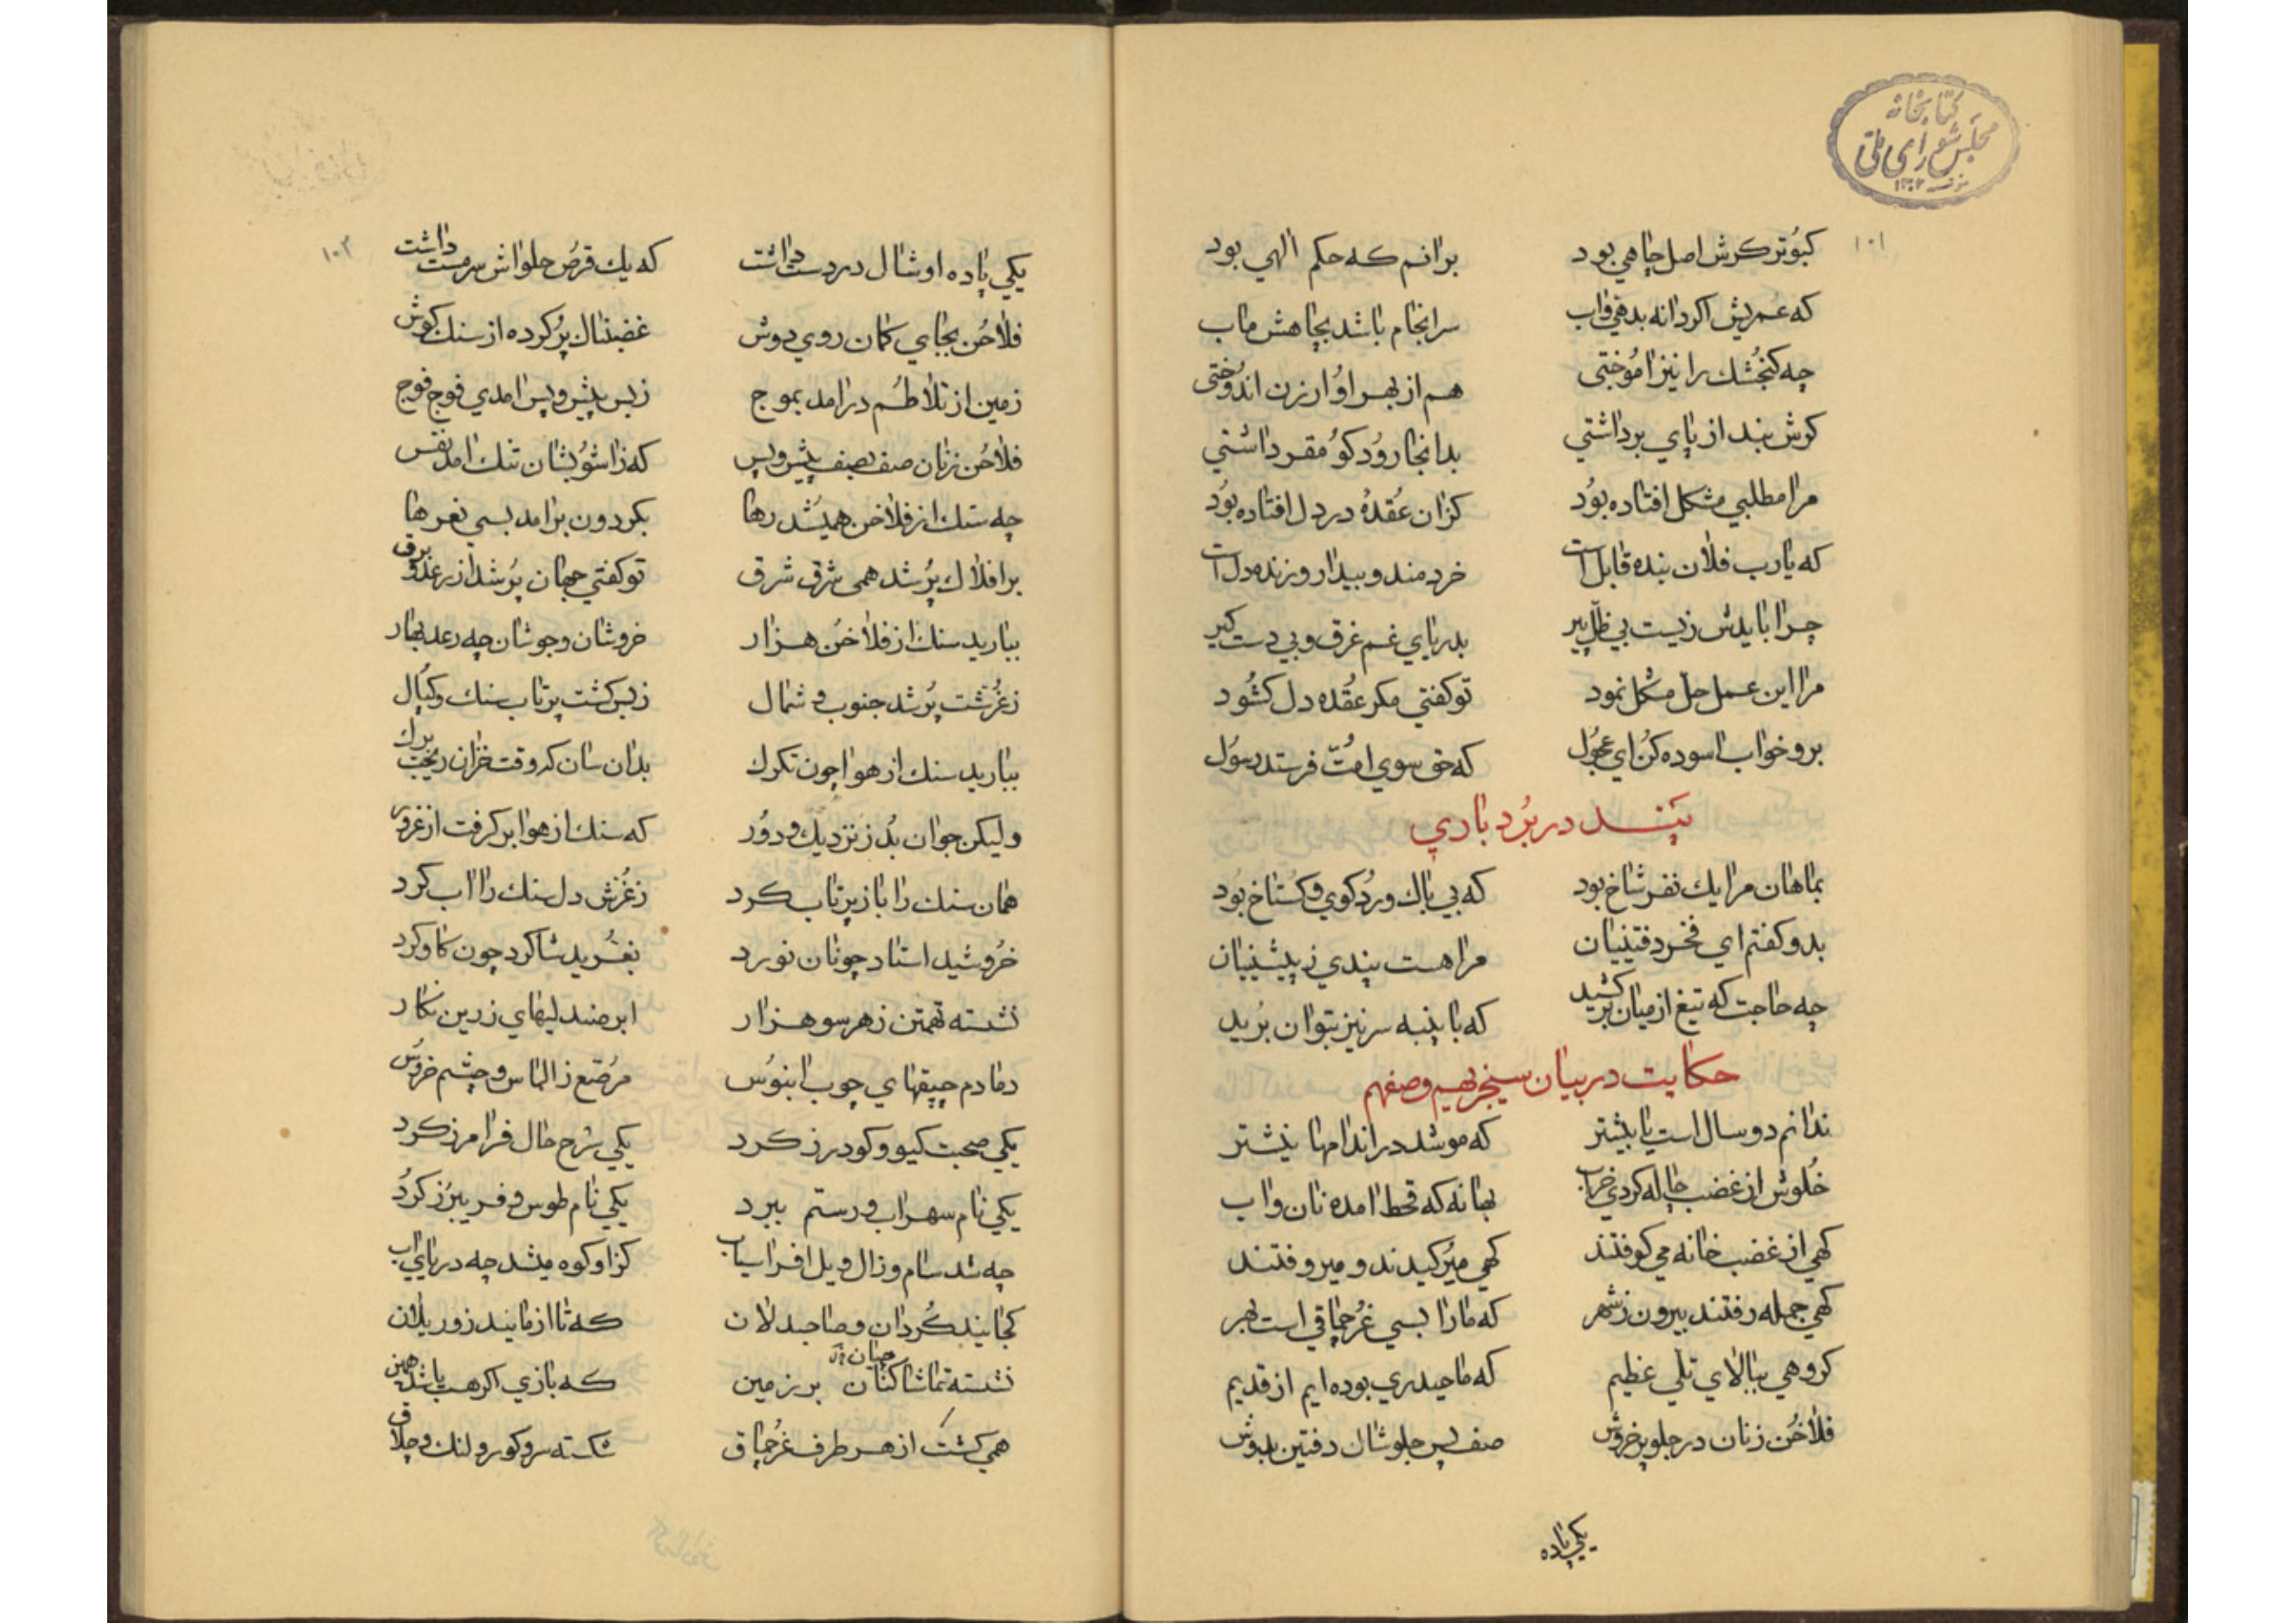 کتابخانه
مجلس شورای ملی
۱۳۰۲
۱۰۱
کبوتر کرش اصل چاهی بود برانم که حکم الهی بود
که عمریش اکر دانه بدهی واب سرانجام باشد بچاهش ماب
چه کنجشك را نیز اموختی هم از بهر او ارزن اندوختی
کرش بند از پای برداشتی بدانجا رود کو مقر داشتی
مرا مطلبی مشکل افتاده بود کزان عقدهٔ در دل افتاده بود
که یارب فلان بنده قابل است خردمند و بیدار و زنده دل است
چرا بایدش زیست بی ظل پیر بدریای غم غرق و بی دست کیر
مرا این عمل حل مشکل نمود تو کفتی مکر عقده دل کشود
برو خواب اسوده کن ای عجول که حق سوی امت فرستد رسول
پند در بردباری
بماهان مرا یك نفر شاخ بود که بی باك ورد کوی و کستاخ بود
بدو کفتم ای فخر دفتینیان مرا هست پندی ز پیشینیان
چه حاجت که تیغ از میان برکشید که با پنبه سر نیز بتوان برید
حکایت در بیان
ندانم دو سال است یا بیشتر که مو شد در اندامها نیشتر
خلوش از غضب چاله کردی خراب بهانه که قحط امده نان واب
کهی از غضب خانه می کوفتند کهی میرکیدند و میروفتند
کهی جمله رفتند بیرون ز شهر که ما را بسی غرچماقی است بهر
کروهی ببالای تلی عظیم که ما حیدری بوده ایم از قدیم
فلاخن زنان در جلو پر خروش صف پس جلوشان دفتین بدوش
یکی پاده
۱۰۲
یکی پاده اوشال در دست داشت که یك قرص حلواش سرمست داشت
فلاخن بجای کمان روی دوش غضبناك پر کرده از سنك کوش
زمین از تلاطم درامد بموج ز بس پیش و پس امدی فوج فوج
فلاخن زنان صف بصف پیش و پس که ز اشوبشان تنك امد نفس
چه سنك از فلاخن همیشد رها بکردون برامد بسی نعرها
بر افلاك پر شد همی شرق شرق تو کفتی جهان پر شد از رعد و برق
ببارید سنك از فلاخن هزار خروشان و جوشان چه رعد بهار
ز غرشت پر شد جنوب و شمال ز بس کشت پرتاب سنك و کپال
ببارید سنك از هوا چون تکرك بدان سان که وقت خزان ریخت برك
ولیکن جوان بد ز نزدیك و دور که سنك از هوا بر کرفت از غرور
همان سنك را باز پرتاب کرد ز غرش دل سنك را اب کرد
خروشید استاد چونان نورد بغرید شاکرد چون کاو کرد
نشسته تهمتن ز هر سو هزار ابر صندلیهای زرین نکار
دمادم چپقهای چوب ابنوس مرصع ز الماس و چشم خروس
یکی صحبت کیو و کودرز کرد یکی شرح حال فرامرز کرد
یکی نام سهراب و رستم ببرد یکی نام طوس و فریبرز کرد
چه شد سام و زال و یل افراسیاب کز او کوه میشد چه دریای اب
کجایند کردان و صاحبدلان که تا ازمایند زور یلان
نشسته تماشاکنان بر زمین که بازی اکر هست باشد همین
همی کشت از هر طرف غرچماق شکسته سر و کور و لنك و چلاق